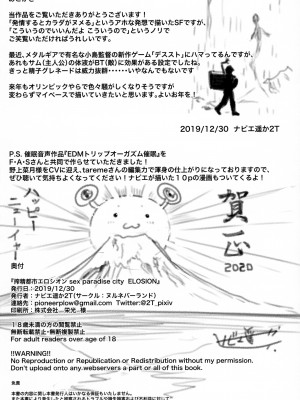 当作品をご覧いただきありがとうございます！
「発情するとカラダがヌメる」というアホな発想で描いたSFですが、
「こういうのでいいんだよ こういうので」というノリで
ご笑覧いただければうれしいです。
最近、メタルギアで有名な小島監督の新作ゲーム「デススト」にハマってるんですが、
あれもサム(主人公)の体液がBT(敵)に効果がある設定でしたね。
きっと精子グレネードは威力抜群・・・・・・いやなんでもないです
来年もオリンピックやらで色々騒がしくなりそうですが
変わらずマイペースで描いていきたいと思います。よいお年を！
2019/12/30 ナビエ遥か2T
P.S. 催眠音声作品『EDMトリップオーガズム催眠』を
F・A・Sさんと共同で作らせていただきました！
野上菜月様をCVに迎え、taremeさんの編集力で渾身の仕上がりになっておりますので、
ぜひ聴いて気持ちよくなってください！ナビエが描いた10pの漫画もついてくるよ！
ハッピーニューイヤー
賀正
2020
ナビエ遥か2T
奥付
『搾精都市エロシオン sex paradise city ELOSION』
発行日：2019/12/30
発行者：ナビエ遥か2T(サークル：ヌルネバーランド)
連絡先：pioneerplow@gmail.com Twitter@2T_pixiv
印刷所：株式会社 栄光 様
18歳未満の方の閲覧禁止
無断転載禁止・無断複製禁止
For adult readers over age of 18
!!WARNING!!
No Reproduction or Republication or Redistribution without my permission.
Don't upload onto any webservers a part or all of this book.
免責